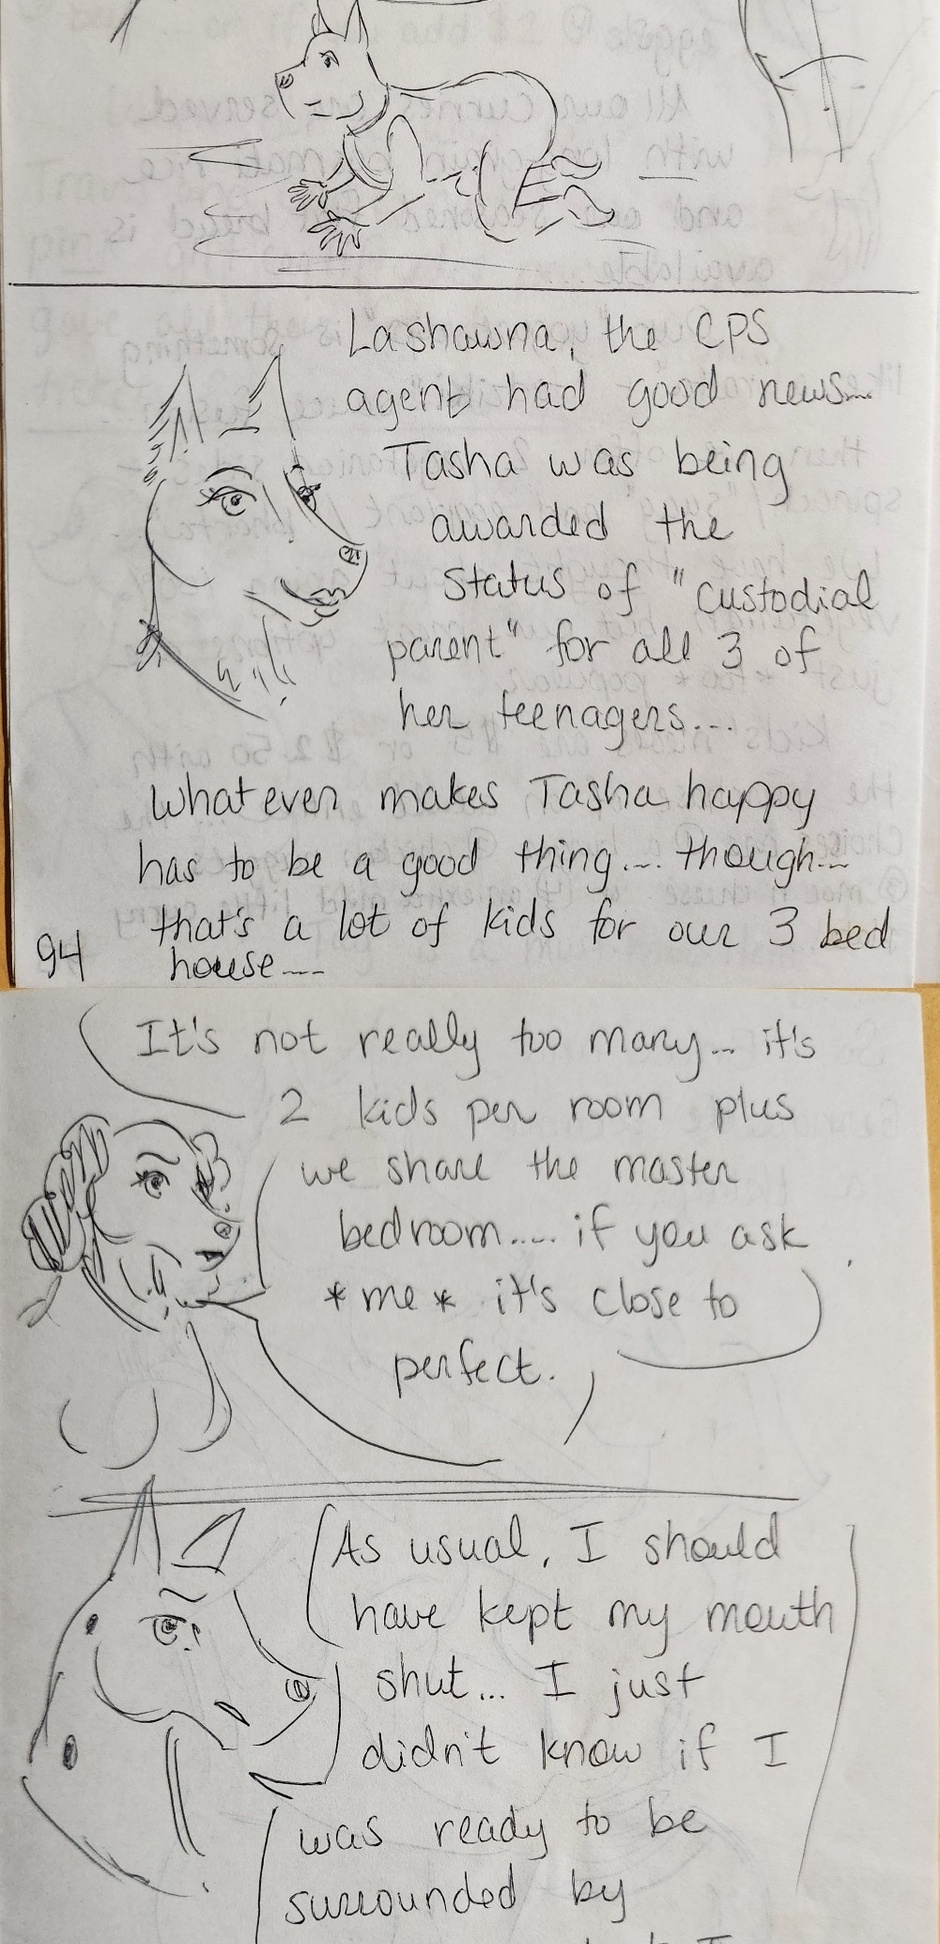 Lashawna, the CPS
agent had good news....
Tasha was being
awarded the
status of "custodial
parent" for all 3 of
her teenagers....
whatever makes Tasha happy
has to be a good thing.... though....
that's a lot of kids for our 3 bed
house....
94
It's not really too many... it's
2 kids per room plus
we share the master
bedroom.... if you ask
*me* it's close to
perfect.
As usual, I should
have kept my mouth
shut... I just
didn't know if I
was ready to be
surrounded by